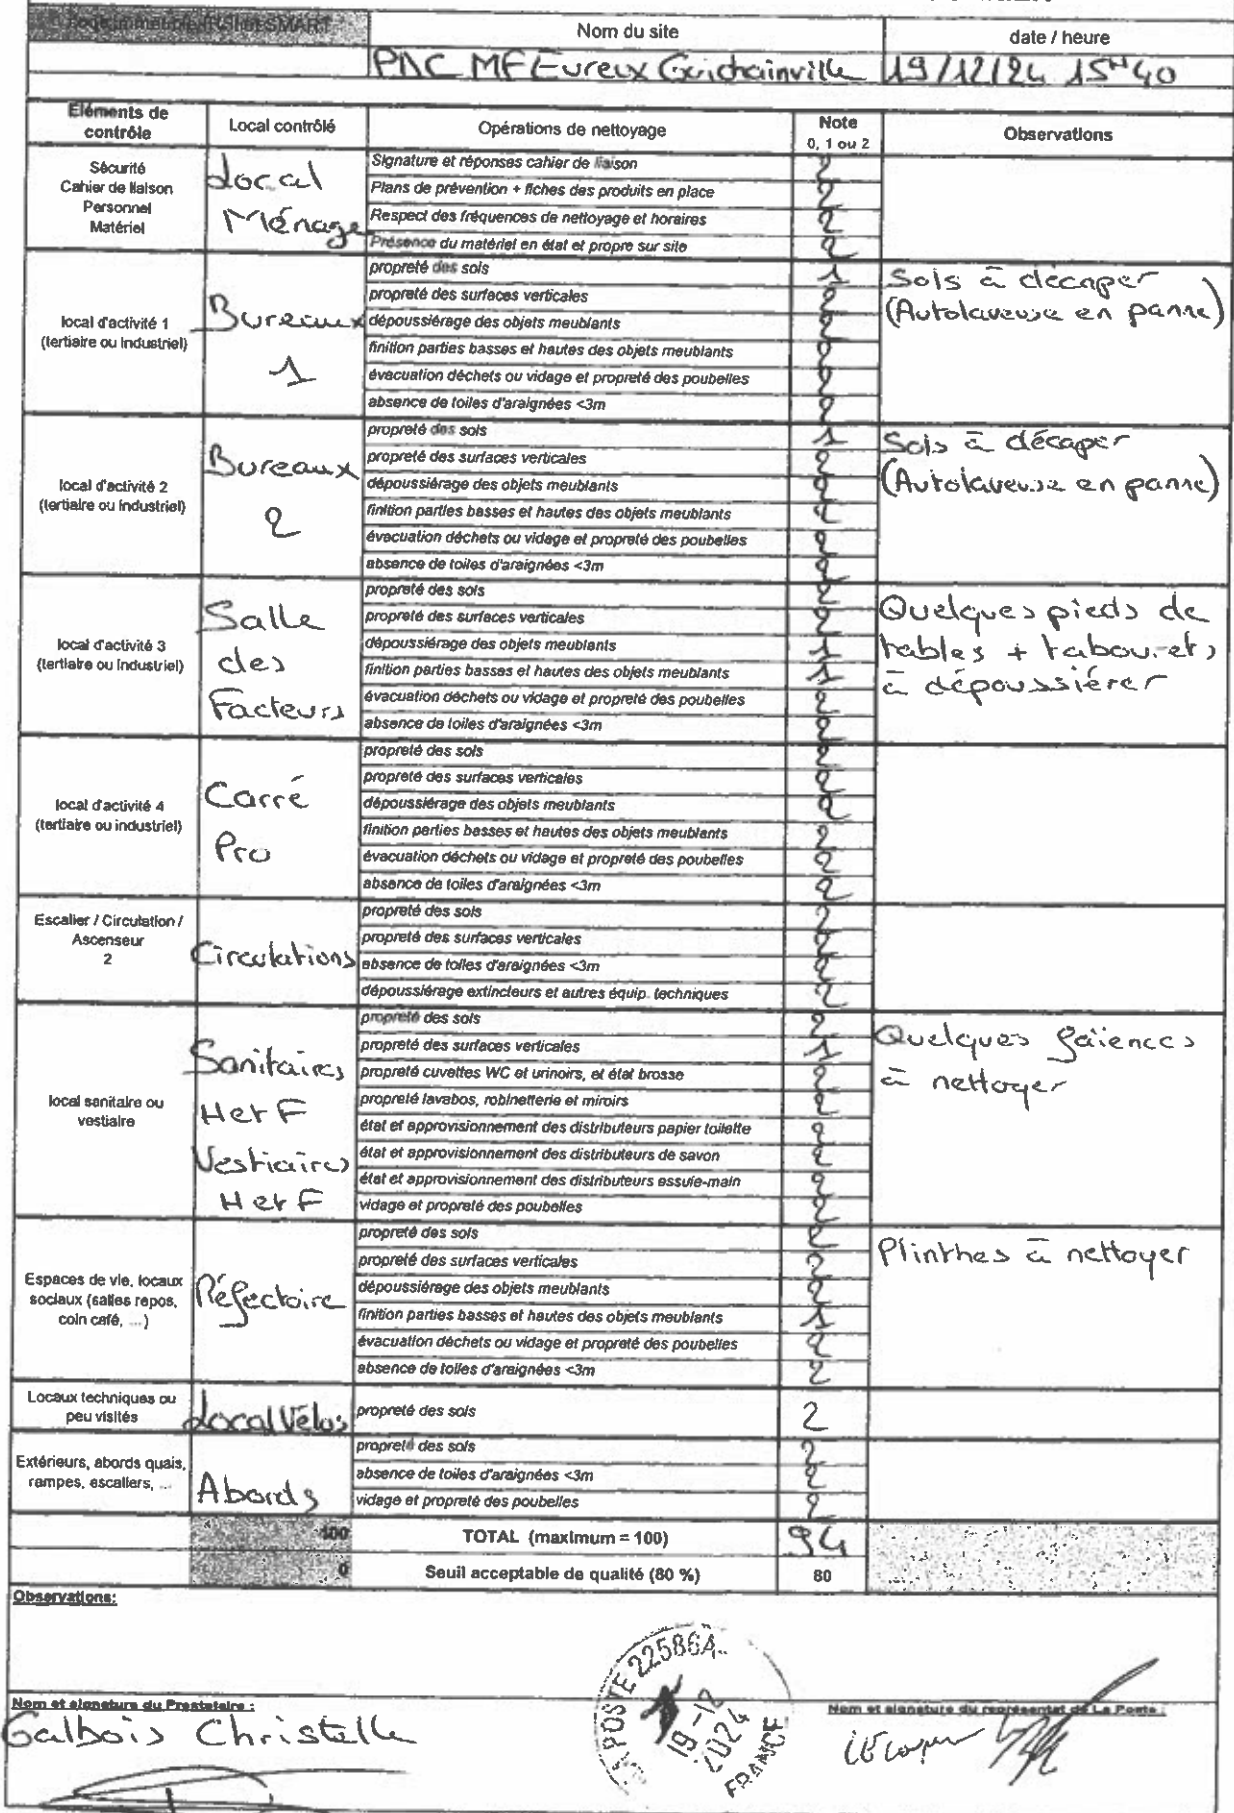 Nom du site
date / heure
PAC MF Evreux Guichainville
19/12/24 15H40
Eléments de contrôle
Local contrôlé
Opérations de nettoyage
Note
0, 1 ou 2
Observations
Sécurité
Cahier de liaison
Personnel
Matériel
Local
Ménage
Signature et réponses cahier de liaison 2
Plans de prévention + fiches des produits en place 2
Respect des fréquences de nettoyage et horaires 2
Présence du matériel en état et propre sur site 2
local d'activité 1
(tertiaire ou industriel)
Bureaux
1
propreté des sols 1
propreté des surfaces verticales 2
dépoussiérage des objets meublants 2
finition parties basses et hautes des objets meublants 2
évacuation déchets ou vidage et propreté des poubelles 2
absence de toiles d'araignées <3m 2
Sols à décaper
(Autolaveuse en panne)
local d'activité 2
(tertiaire ou industriel)
Bureaux
2
propreté des sols 1
propreté des surfaces verticales 2
dépoussiérage des objets meublants 2
finition parties basses et hautes des objets meublants 2
évacuation déchets ou vidage et propreté des poubelles 2
absence de toiles d'araignées <3m 2
Sols à décaper
(Autolaveuse en panne)
local d'activité 3
(tertiaire ou industriel)
Salle
des
Facteurs
propreté des sols 2
propreté des surfaces verticales 2
dépoussiérage des objets meublants 1
finition parties basses et hautes des objets meublants 1
évacuation déchets ou vidage et propreté des poubelles 2
absence de toiles d'araignées <3m 2
Quelques pieds de
tables + tabourets
à dépoussiérer
local d'activité 4
(tertiaire ou industriel)
Carré
Pro
propreté des sols 2
propreté des surfaces verticales 2
dépoussiérage des objets meublants 2
finition parties basses et hautes des objets meublants 2
évacuation déchets ou vidage et propreté des poubelles 2
absence de toiles d'araignées <3m 2
Escalier / Circulation /
Ascenseur
2
Circulations
propreté des sols 2
propreté des surfaces verticales 2
absence de toiles d'araignées <3m 2
dépoussiérage extincteurs et autres équip. techniques 2
local sanitaire ou
vestiaire
Sanitaires
H et F
Vestiaires
H et F
propreté des sols 2
propreté des surfaces verticales 1
propreté cuvettes WC et urinoirs, et état brosse 2
propreté lavabos, robinetterie et miroirs 2
état et approvisionnement des distributeurs papier toilette 2
état et approvisionnement des distributeurs de savon 2
état et approvisionnement des distributeurs essuie-main 2
vidage et propreté des poubelles 2
Quelques faïences
à nettoyer
Espaces de vie, locaux
sociaux (salles repos,
coin café, ...)
Réfectoire
propreté des sols 2
propreté des surfaces verticales 2
dépoussiérage des objets meublants 2
finition parties basses et hautes des objets meublants 1
évacuation déchets ou vidage et propreté des poubelles 2
absence de toiles d'araignées <3m 2
Plinthes à nettoyer
Locaux techniques ou
peu visités
Local Vélos
propreté des sols 2
Extérieurs, abords quais,
rampes, escaliers, ...
Abords
propreté des sols 2
absence de toiles d'araignées <3m 2
vidage et propreté des poubelles 2
100
TOTAL (maximum = 100)
94
0
Seuil acceptable de qualité (80 %)
80
Observations:
LA POSTE 22586A
19-12
2024
FRANCE
Nom et signature du Prestataire :
Galbois Christelle
Nom et signature du représentat de La Poste :